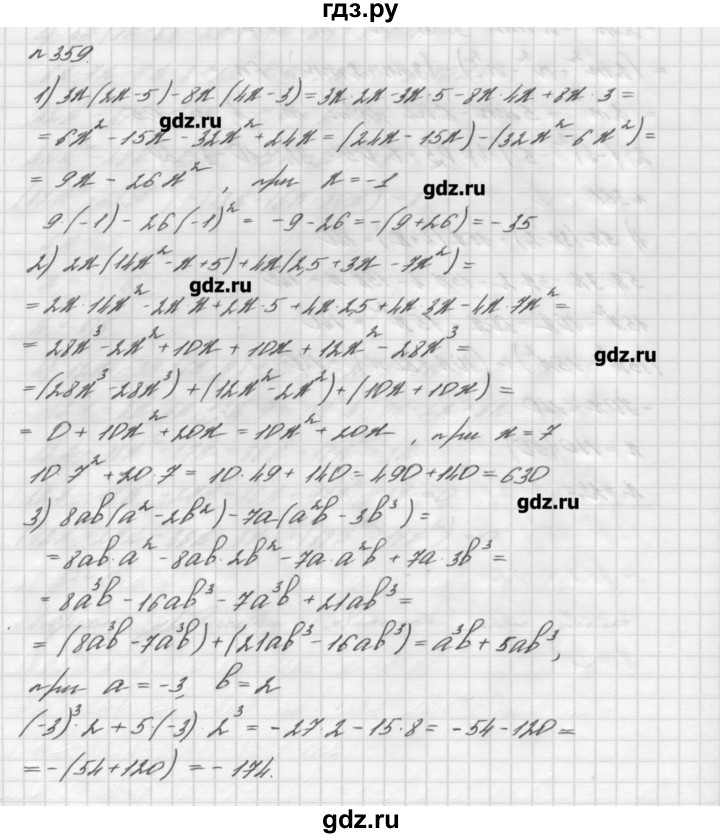 гдз.ру
n 359.
1) 3x(2x-5)-8x(4x-3)=3x·2x-3x·5-8x·4x+8x·3=
gdz.ru
=6x²-15x-32x²+24x=(24x-15x)-(32x²-6x²)=
=9x-26x², при x=-1
gdz.ru
9(-1)-26(-1)²=-9-26=-(9+26)=-35
2) 2x(14x²-x+5)+4x(2,5+3x-7x²)=
gdz.ru
=2x·14x²-2x·x+2x·5+4x·2,5+4x·3x-4x·7x²=
=28x³-2x²+10x+10x+12x²-28x³=
gdz.ru
=(28x³-28x³)+(12x²-2x²)+(10x+10x)=
=0+10x²+20x=10x²+20x, при x=7
10·7²+20·7=10·49+140=490+140=630
gdz.ru
3) 8ab(a²-2b²)-7a(a²b-3b³)=
=8ab·a²-8ab·2b²-7a·a²b+7a·3b³=
=8a³b-16ab³-7a³b+21ab³=
=(8a³b-7a³b)+(21ab³-16ab³)=a³b+5ab³,
при a=-3, b=2
(-3)³·2+5·(-3)·2³=-27·2-15·8=-54-120=
=-(54+120)=-174.
gdz.ru